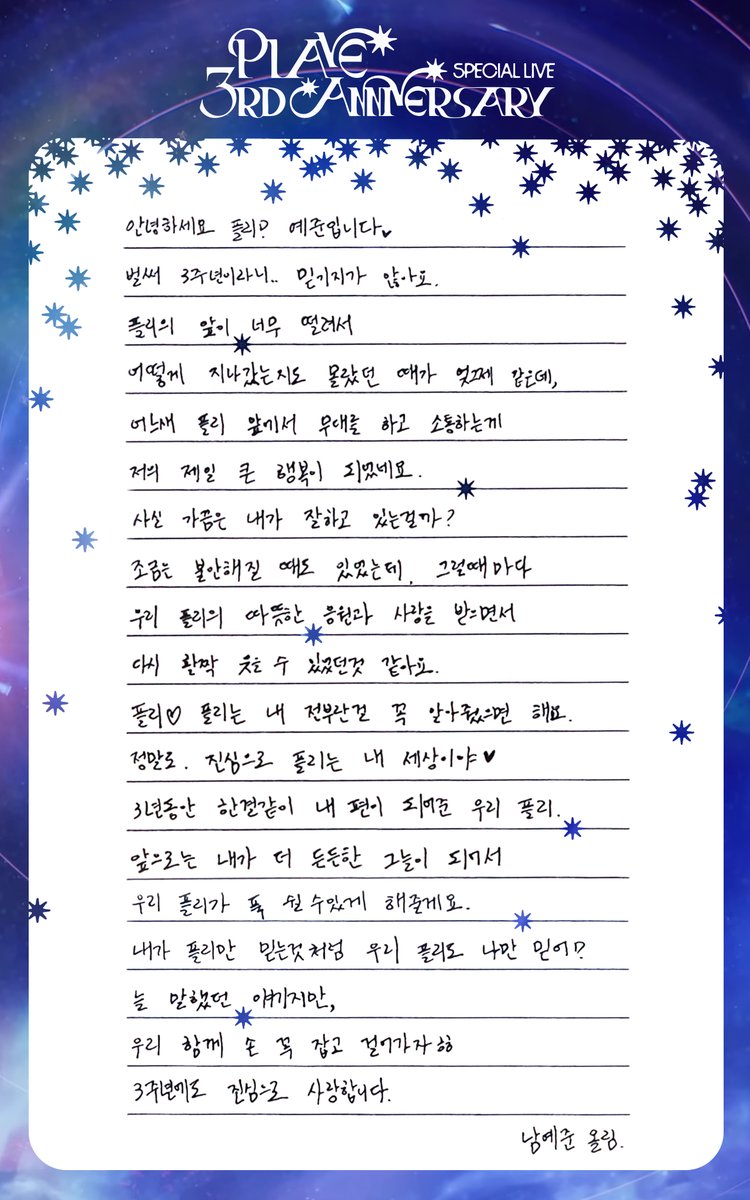 PLAVE
3RD ANNIVERSARY SPECIAL LIVE
안녕하세요 플리? 예준입니다♥
벌써 3주년이라니.. 믿기지가 않아요.
플리의 앞이 너무 떨려서
어떻게 지나갔는지도 몰랐던 때가 엊그제 같은데,
어느새 플리 앞에서 무대를 하고 소통하는게
저의 제일 큰 행복이 되었네요.
사실 가끔은 내가 잘하고 있는걸까?
조금은 불안해질 때도 있었는데, 그럴때마다
우리 플리의 따뜻한 응원과 사랑을 받으면서
다시 활짝 웃을 수 있었던것 같아요.
플리♡ 플리는 내 전부란걸 꼭 알아줬으면 해요.
정말로. 진심으로 플리는 내 세상이야♥
3년동안 한결같이 내 편이 되어준 우리 플리.
앞으로는 내가 더 든든한 그늘이 되어서
우리 플리가 푹 쉴 수있게 해줄게요.
내가 플리만 믿는것처럼 우리 플리도 나만 믿어!?
늘 말했던 얘기지만,
우리 함께 손 꼭 잡고 걸어가자ㅎㅎ
3주년에도 진심으로 사랑합니다.
남예준 올림.